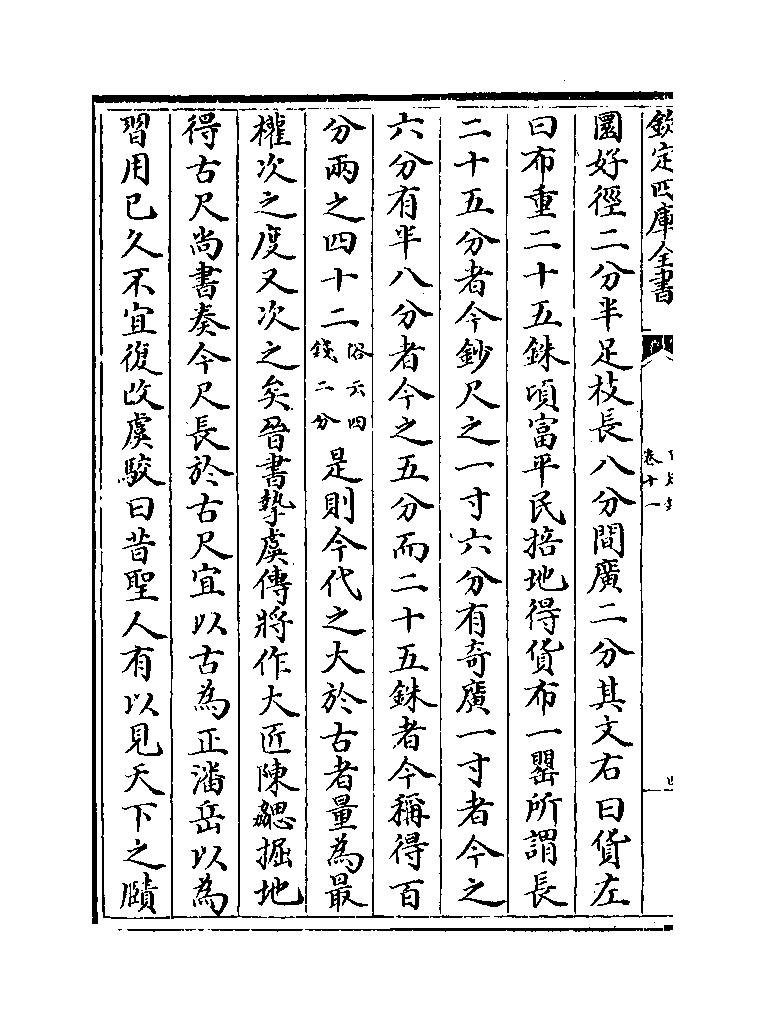 欽定四庫全書
卷十一
圜好徑二分半足枝長八分間廣二分其文右曰貨左
曰布重二十五銖頃富平民掊地得貨布一罌所謂長
二十五分者今鈔尺之一寸六分有奇廣一寸者今之
六分有半八分者今之五分而二十五銖者今稱得百
分兩之四十二俗云四錢二分是則今代之大於古者量為最
權次之度又次之矣晉書摯虞傳將作大匠陳勰掘地
得古尺尚書奏今尺長於古尺宜以古為正潘岳以為
習用已久不宜復改虞駮曰昔聖人有以見天下之賾